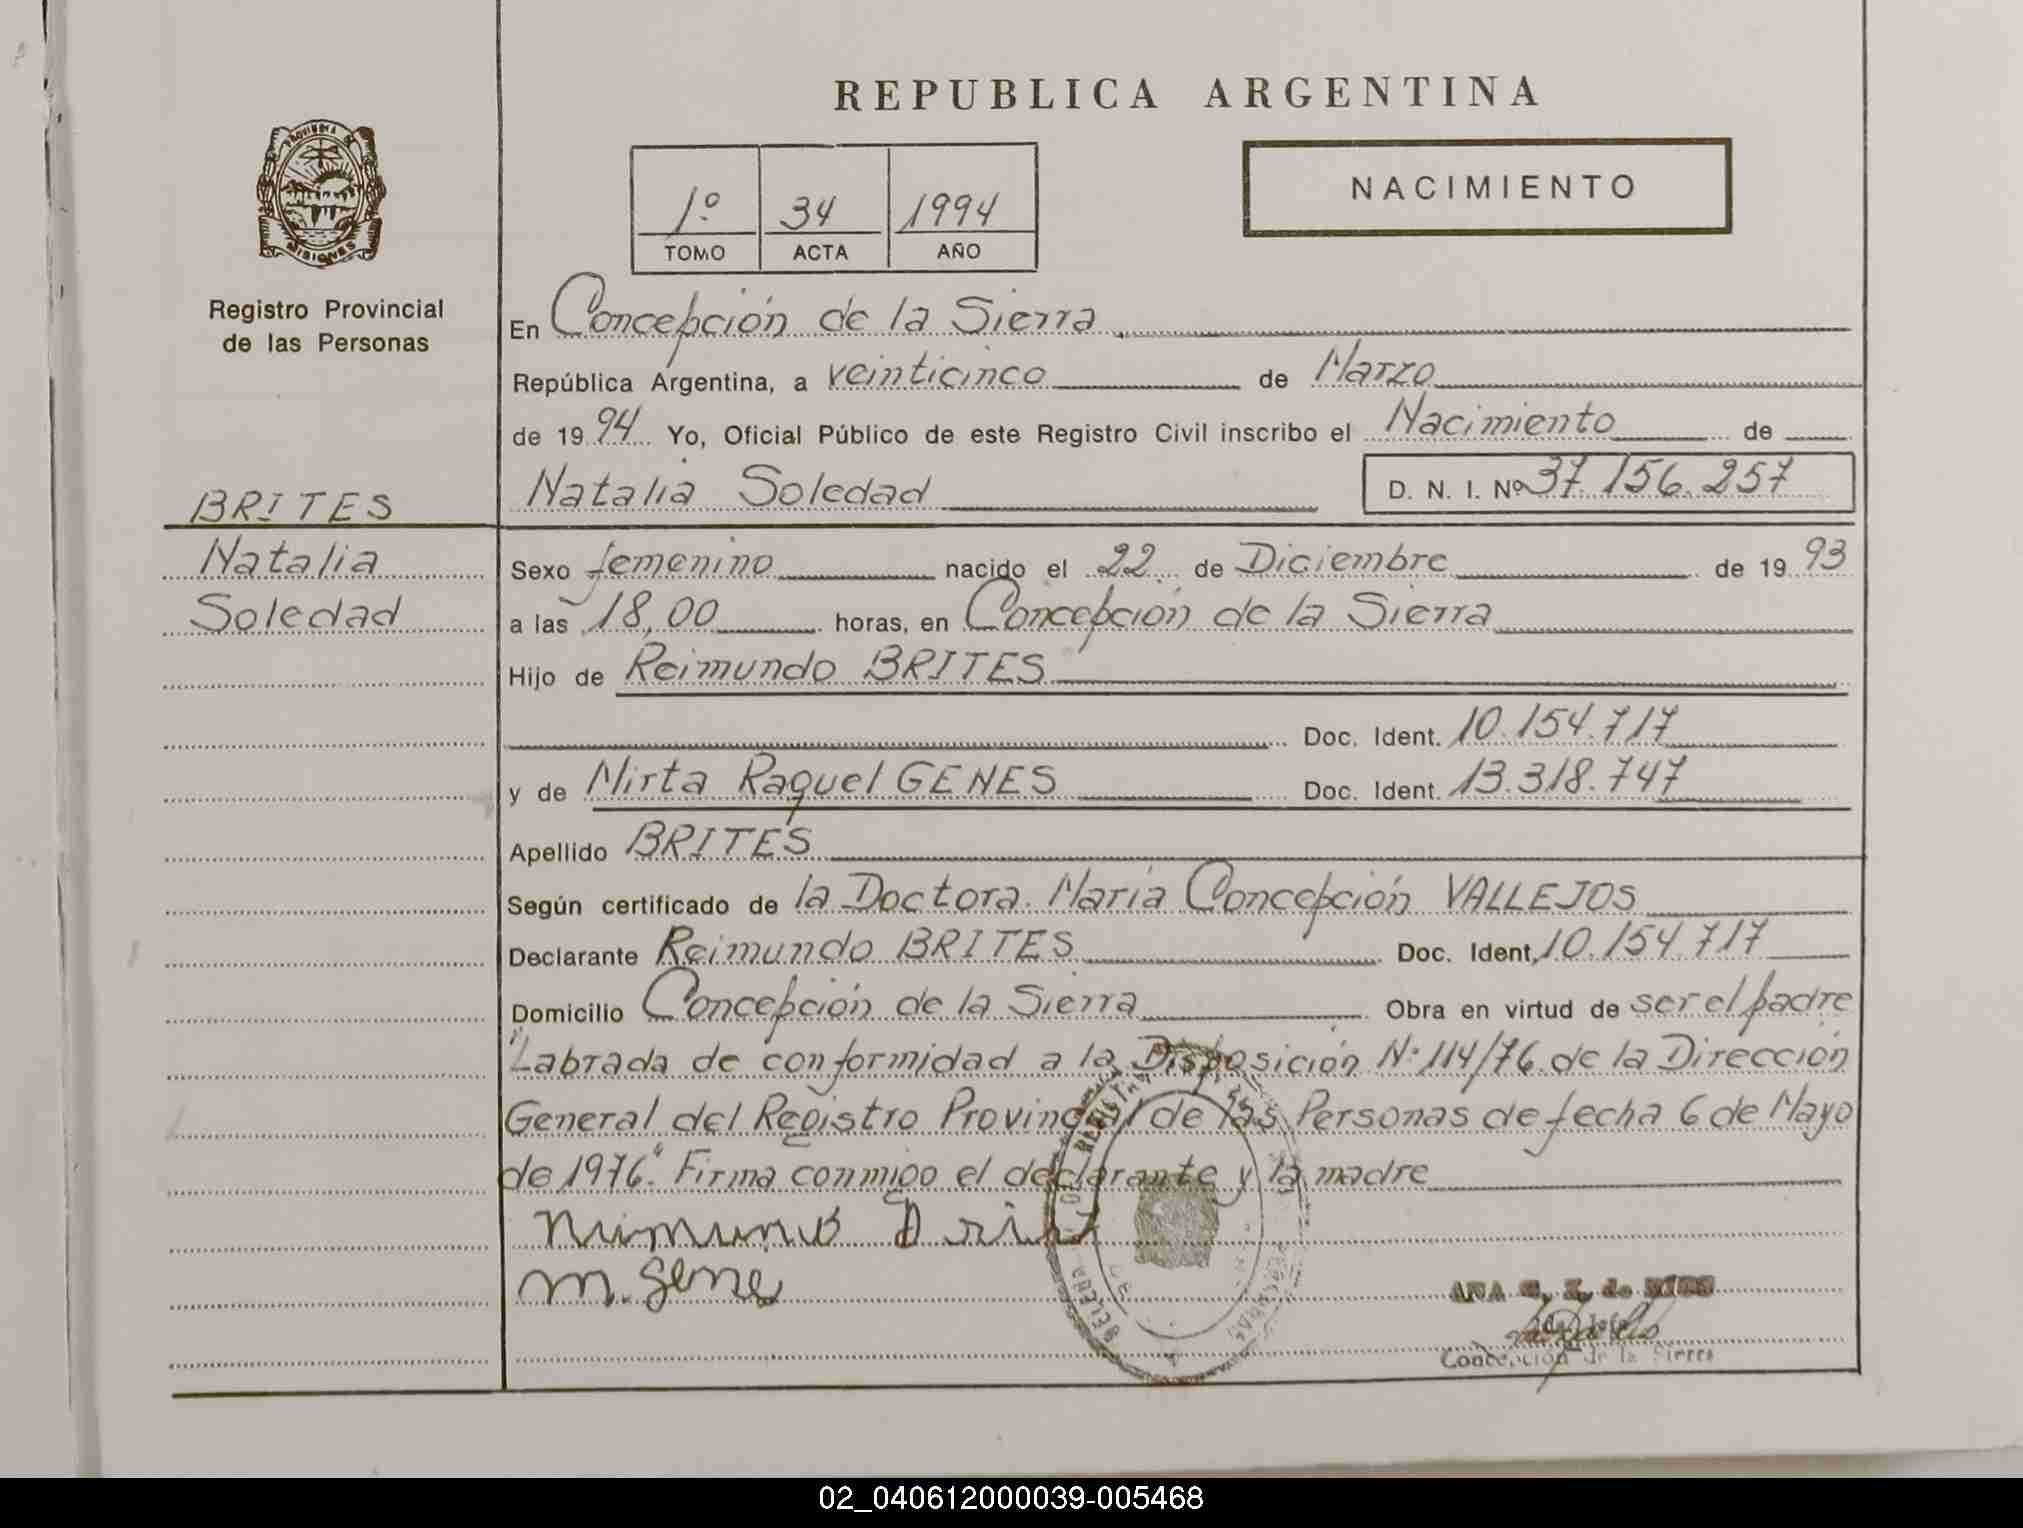 REPUBLICA ARGENTINA
PROVINCIA DE
MISIONES
Registro Provincial
de las Personas
1º 34 1994
TOMO ACTA AÑO
NACIMIENTO
En Concepción de la Sierra
República Argentina, a veinticinco de Marzo
de 19 94 Yo, Oficial Público de este Registro Civil inscribo el Nacimiento de
Natalia Soledad D. N. I. Nº 37.156.257
BRITES
Natalia
Soledad
Sexo femenino nacido el 22 de Diciembre de 19 93
a las 18,00 horas, en Concepción de la Sierra
Hijo de Reimundo BRITES
Doc. Ident. 10.154.717
y de Mirta Raquel GENES Doc. Ident. 13.318.747
Apellido BRITES
Según certificado de la Doctora María Concepción VALLEJOS
Declarante Reimundo BRITES Doc. Ident. 10.154.717
Domicilio Concepción de la Sierra Obra en virtud de ser el padre
"Labrada de conformidad a la Disposición Nº 114/76 de la Dirección
General del Registro Provincial de las Personas de fecha 6 de Mayo
de 1976". Firma conmigo el declarante y la madre
m. gene
ANA de
Concepción de la Sierra
02_040612000039-005468